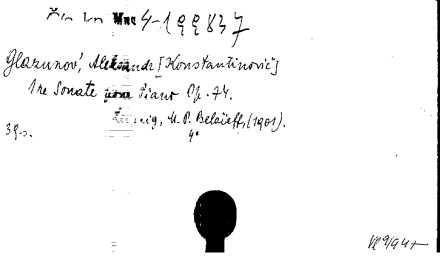 Mus 4-199837
Glazunov, Aleksandr [Konstantinovič]
1re Sonate pour Piano Op. 74.
Leipzig, M. P. Belaïeff, (1901).
4°
39 s.